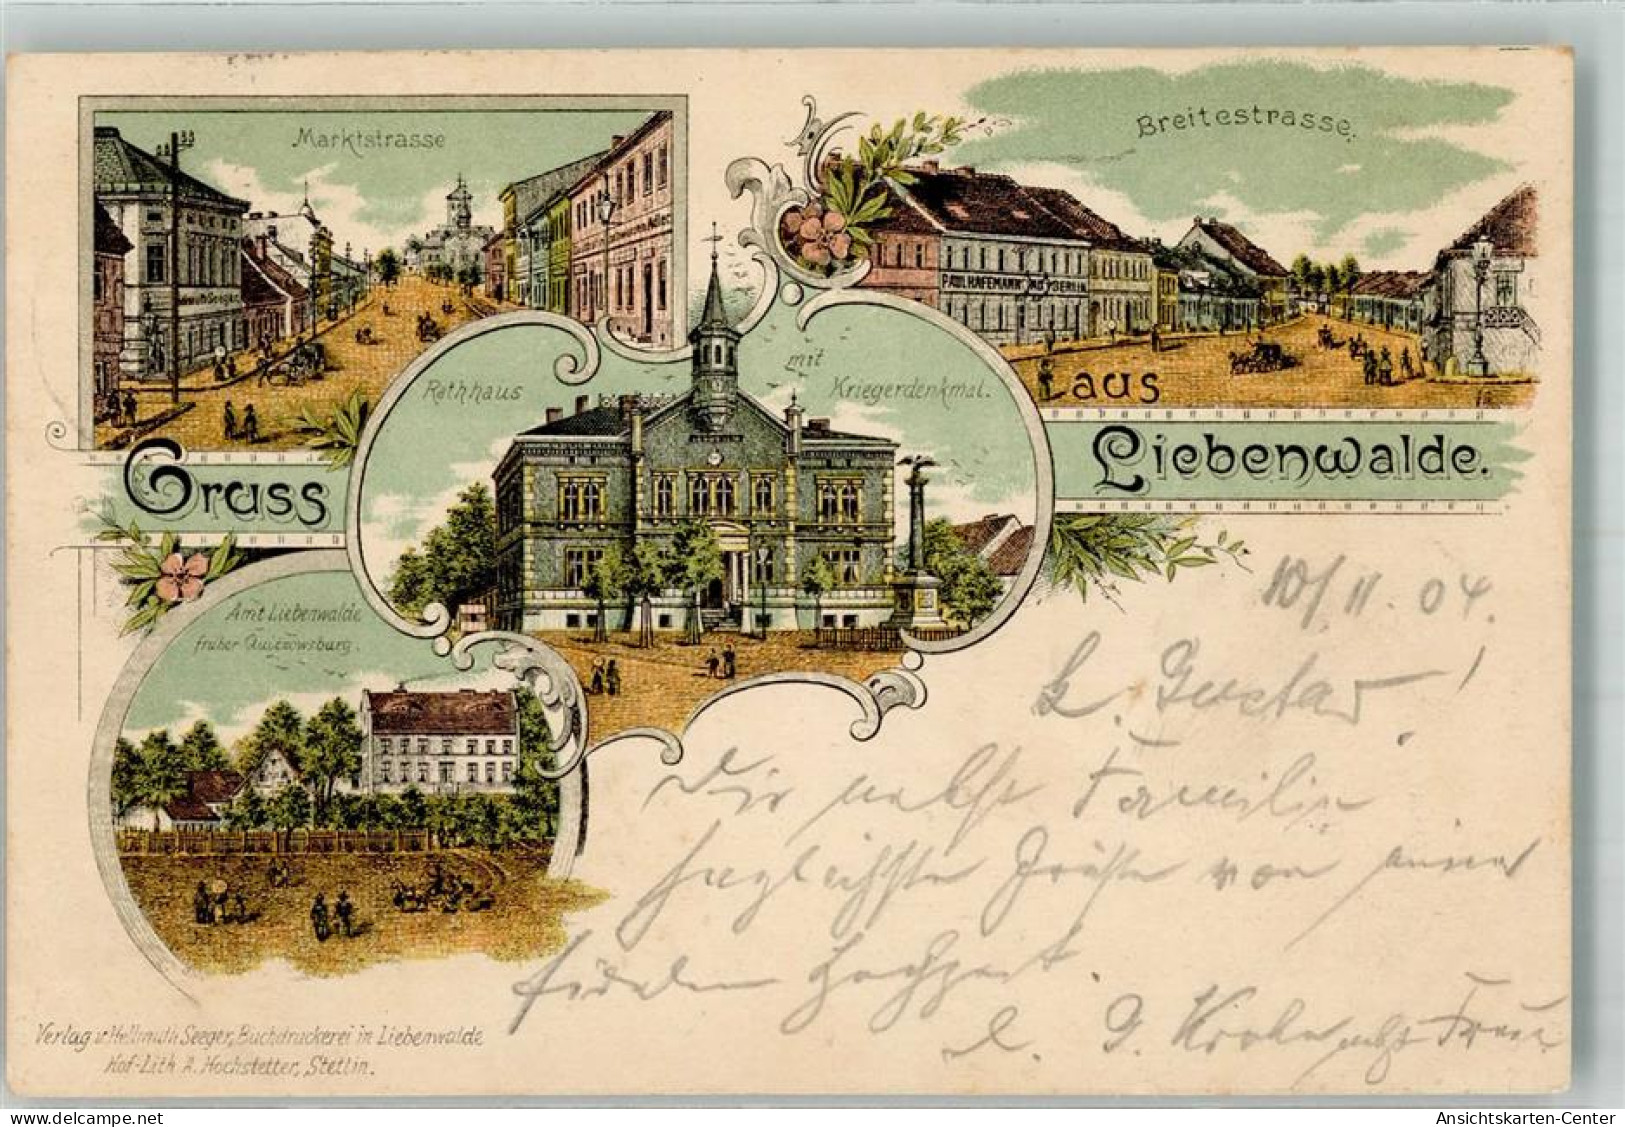 Marktstrasse
Breitestrasse.
PAUL HAFEMANN
BERLIN
Rathhaus
mit
Kriegerdenkmal.
Gruss
aus
Liebenwalde.
Amt Liebenwalde
früher Quitzowsburg.
10/11. 04.
L. Gustav!
Dir nebst Familie
herzlichste Grüße von einer
fidelen Hochzeit.
nebst Frau
Verlag v. Hellmuth Seeger, Buchdruckerei in Liebenwalde
Hof-Lith A. Hochstetter, Stettin.
Ansichtskarten-Center